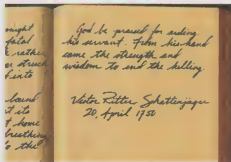 might
fatal
rather
er struck
d into
bound
t its
t home
breathing
o the
God be praised for aiding
his servant. From his hand
came the strength and
wisdom to end the killing.
Victor Ritter Schattenjager
20, April 1750